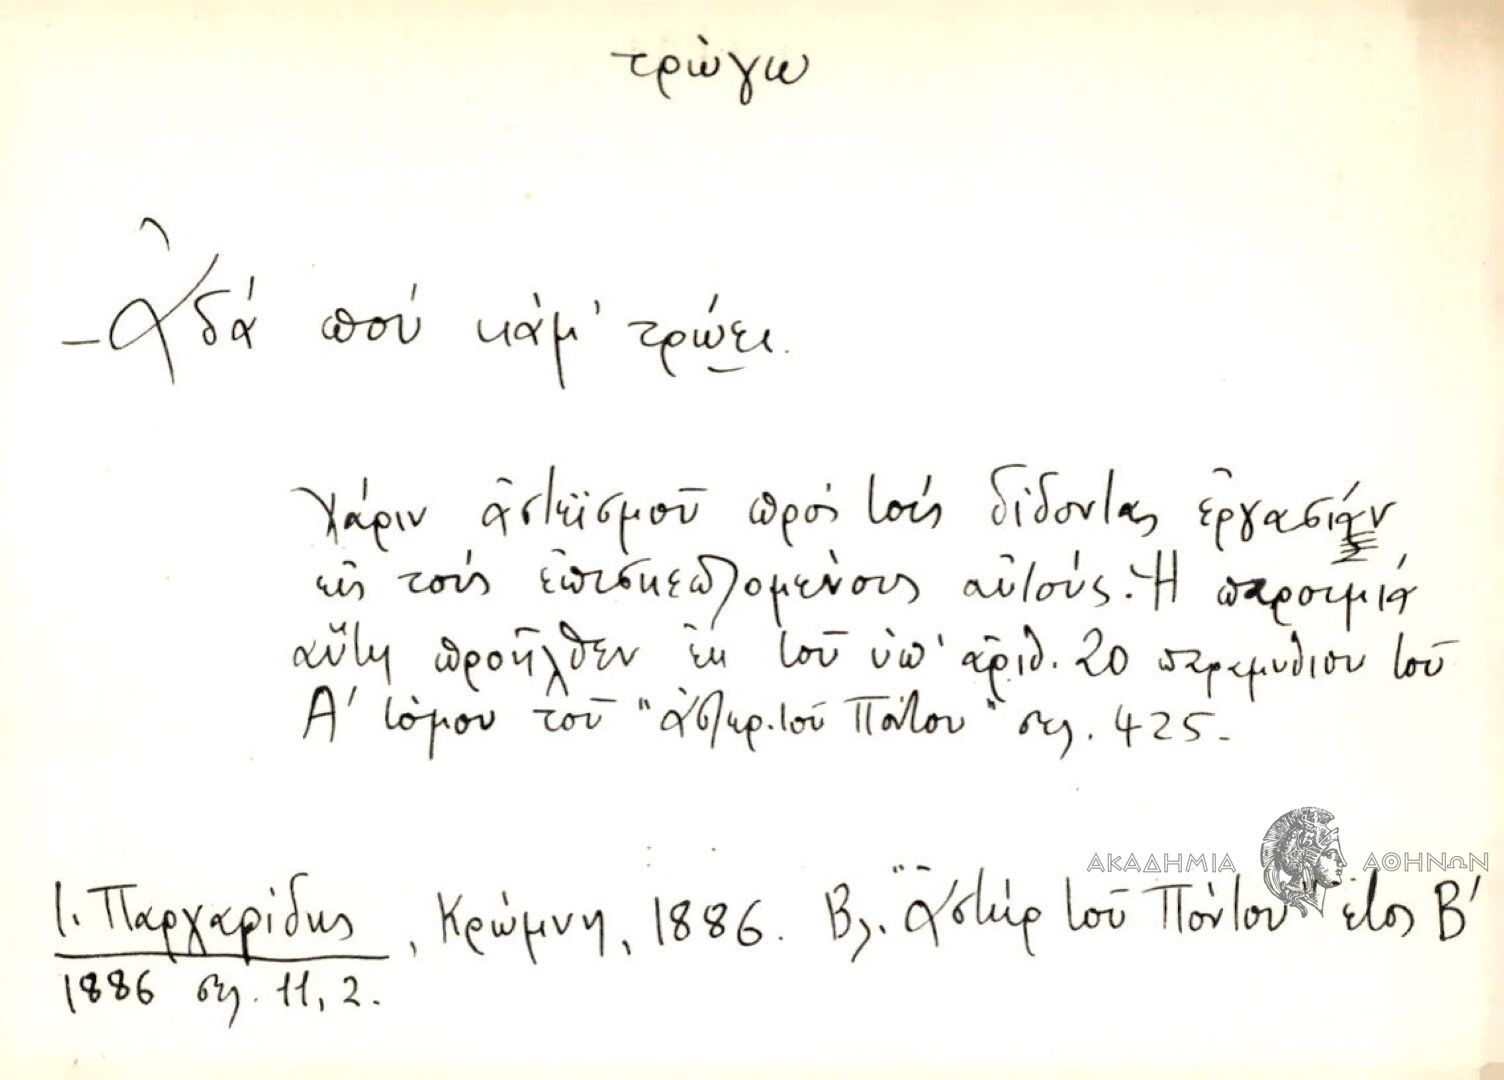 τρώγω
– Ἀδά πού κάμ' τρώει.
Χάριν ἀστεϊσμοῦ πρός τούς δίδοντας ἐργασίαν
εἰς τούς ἐπισκεπτομένους αὐτούς. Ἡ παροιμία
αὕτη προῆλθεν ἐκ τοῦ ὑπ' ἀριθ. 20 παραμυθιου τοῦ
Α' τόμου τοῦ "Ἀστέρ. τοῦ Πόντου" σελ. 425.
ΑΚΑΔΗΜΙΑ ΑΘΗΝΩΝ
Ι. Παρχαρίδης, Κρώμνη, 1886. Βλ. "Ἀστήρ τοῦ Πόντου" ἔτος Β'
1886 σελ. 11, 2.